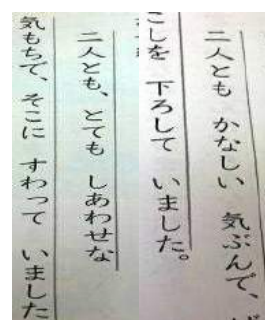 二人とも かなしい 気ぶんで、
こしを 下ろして いました。
二人とも、とても しあわせな
気もちで、そこに すわって いました